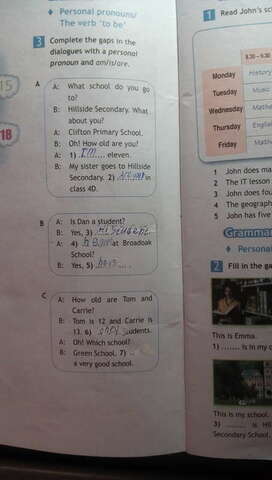 ♦ Personal pronouns/
The verb 'to be'
3 Complete the gaps in the
dialogues with a personal
pronoun and am/is/are.
15
18
A A: What school do you go
to?
B: Hillside Secondary. What
about you?
A: Clifton Primary School.
B: Oh! How old are you?
A: 1) I'm eleven.
B: My sister goes to Hillside
Secondary. 2) in
class 4D.
B A: Is Dan a student?
B: Yes, 3)
A: 4) at Broadoak
School?
B: Yes, 5)
C A: How old are Tom and
Carrie?
B: Tom is 12 and Carrie is
13. 6) students.
A: Oh! Which school?
B: Green School. 7) ..
a very good school.
1 Read John's sc
8.30 – 9.30
Monday History
Tuesday Music
Wednesday Maths
Thursday English
Friday Maths
1 John does ma
2 The IT lesson
3 John does fou
4 The geograph
5 John has five
Grammar
♦ Personal
2 Fill in the ga
This is Emma.
1) ........ is in my c
This is my school.
3) ........ is Hil
Secondary School.